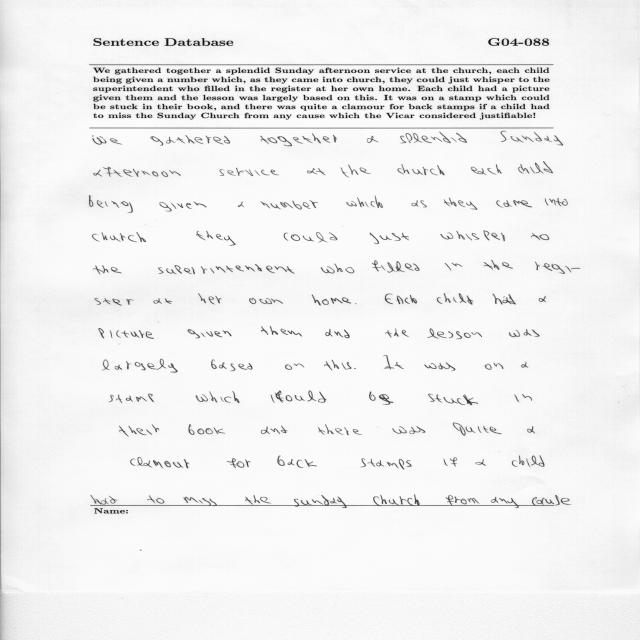 Sentence Database G04-088
We gathered together a splendid Sunday afternoon service at the church, each child
being given a number which, as they came into church, they could just whisper to the
superintendent who filled in the register at her own home. Each child had a picture
given them and the lesson was largely based on this. It was on a stamp which could
be stuck in their book, and there was quite a clamour for back stamps if a child had
to miss the Sunday Church from any cause which the Vicar considered justifiable!
We gathered together a splendid Sunday
afternoon service at the church each child
being given a number which as they came into
church they could just whisper to
the superintendent who filled in the regi-
ster at her own home. Each child had a
picture given them and the lesson was
largely based on this. It was on a
stamp which could be stuck in
their book and there was quite a
clamour for back stamps if a child
had to miss the sunday church from any cause
Name: